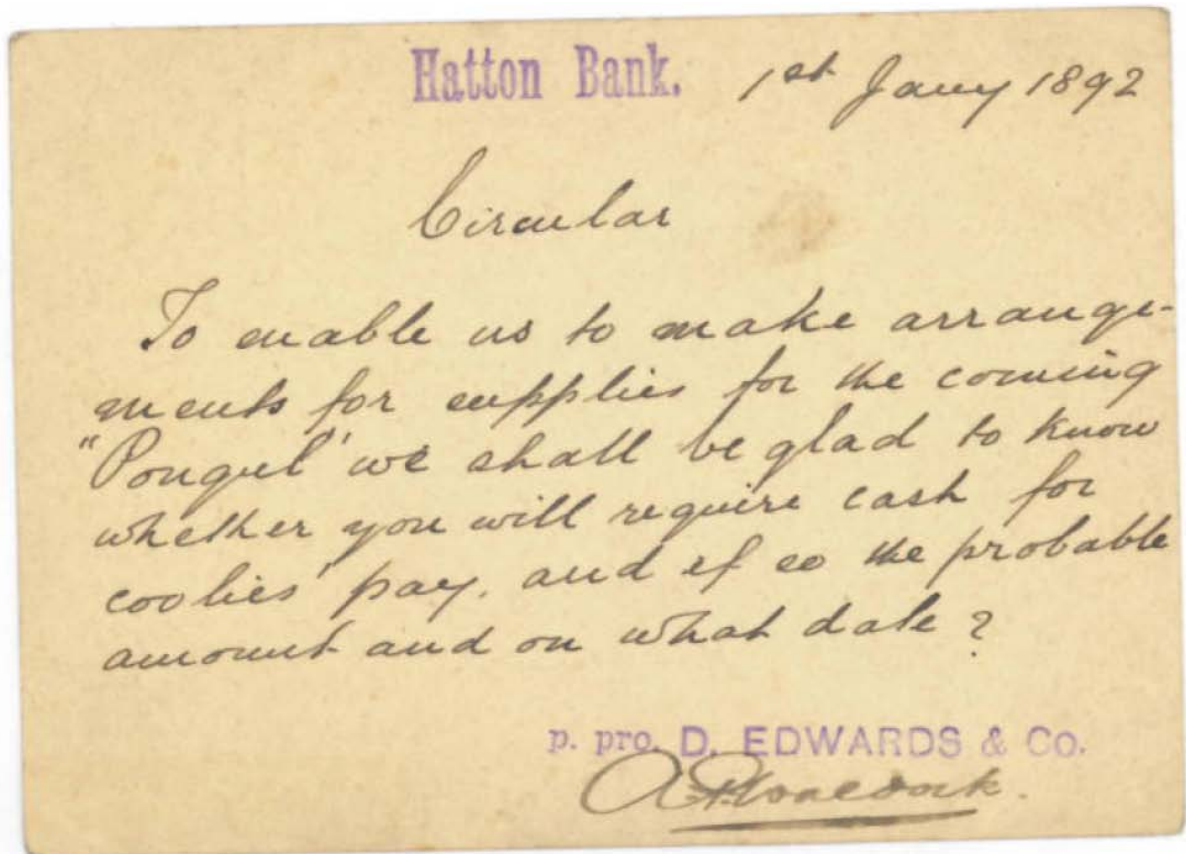 Hatton Bank. 1st Jany 1892
Circular
To enable us to make arrange-
ments for supplies for the coming
"Pongul" we shall be glad to know
whether you will require cash for
coolies' pay, and if so the probable
amount and on what date?
p. pro. D. EDWARDS & Co.